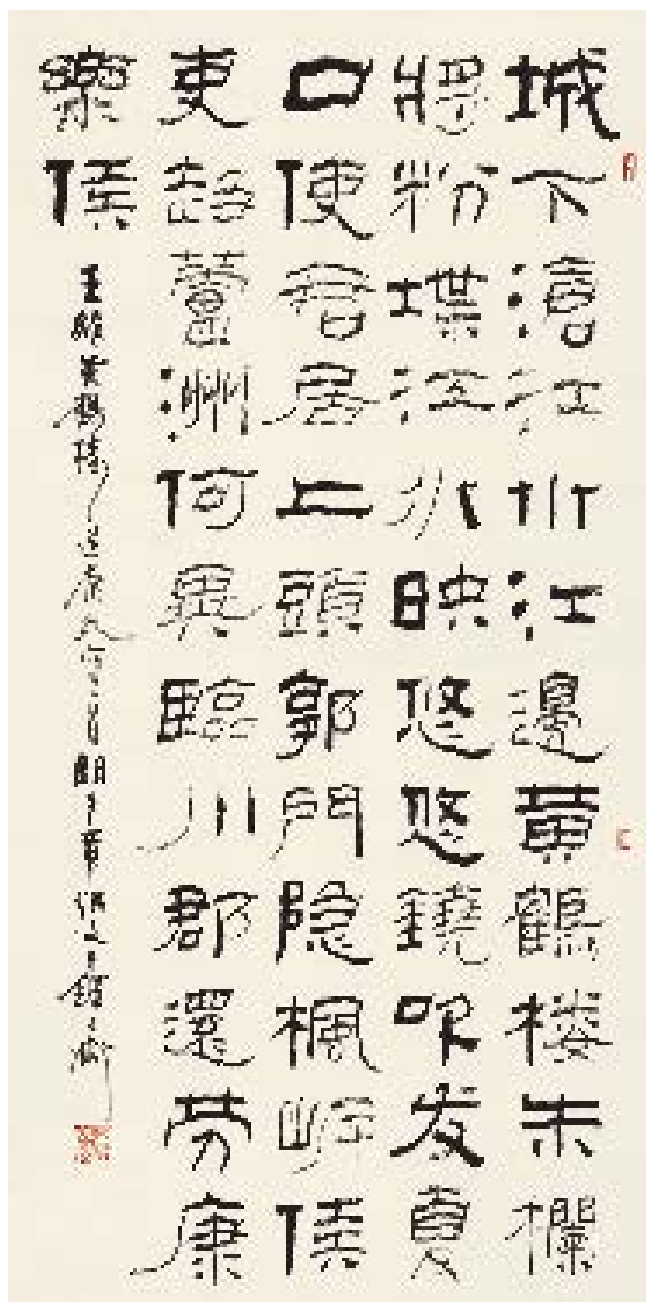 城下滄江水江邊黄鶴楼朱欄
將粉堞江水映悠悠鐃吹发夏
口使君居上頭郭門隐楓岸侯
吏趍蘆洲何異臨川郡還劳康
樂侯
王維黄鶴樓送康太守